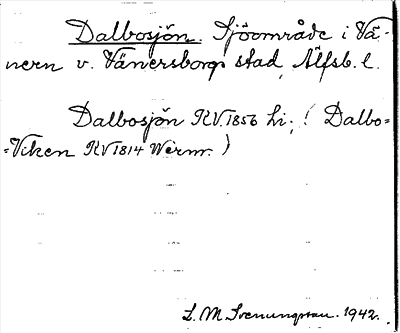 Dalbosjön. Sjöområde i Vä-
nern v. Vänersborgs stad, Älfsb. l.
Dalbosjön RV. 1856 hi.; ( Dalbo=
=Viken RV 1814 Werml. )
L. M. Svenungsson. 1942.